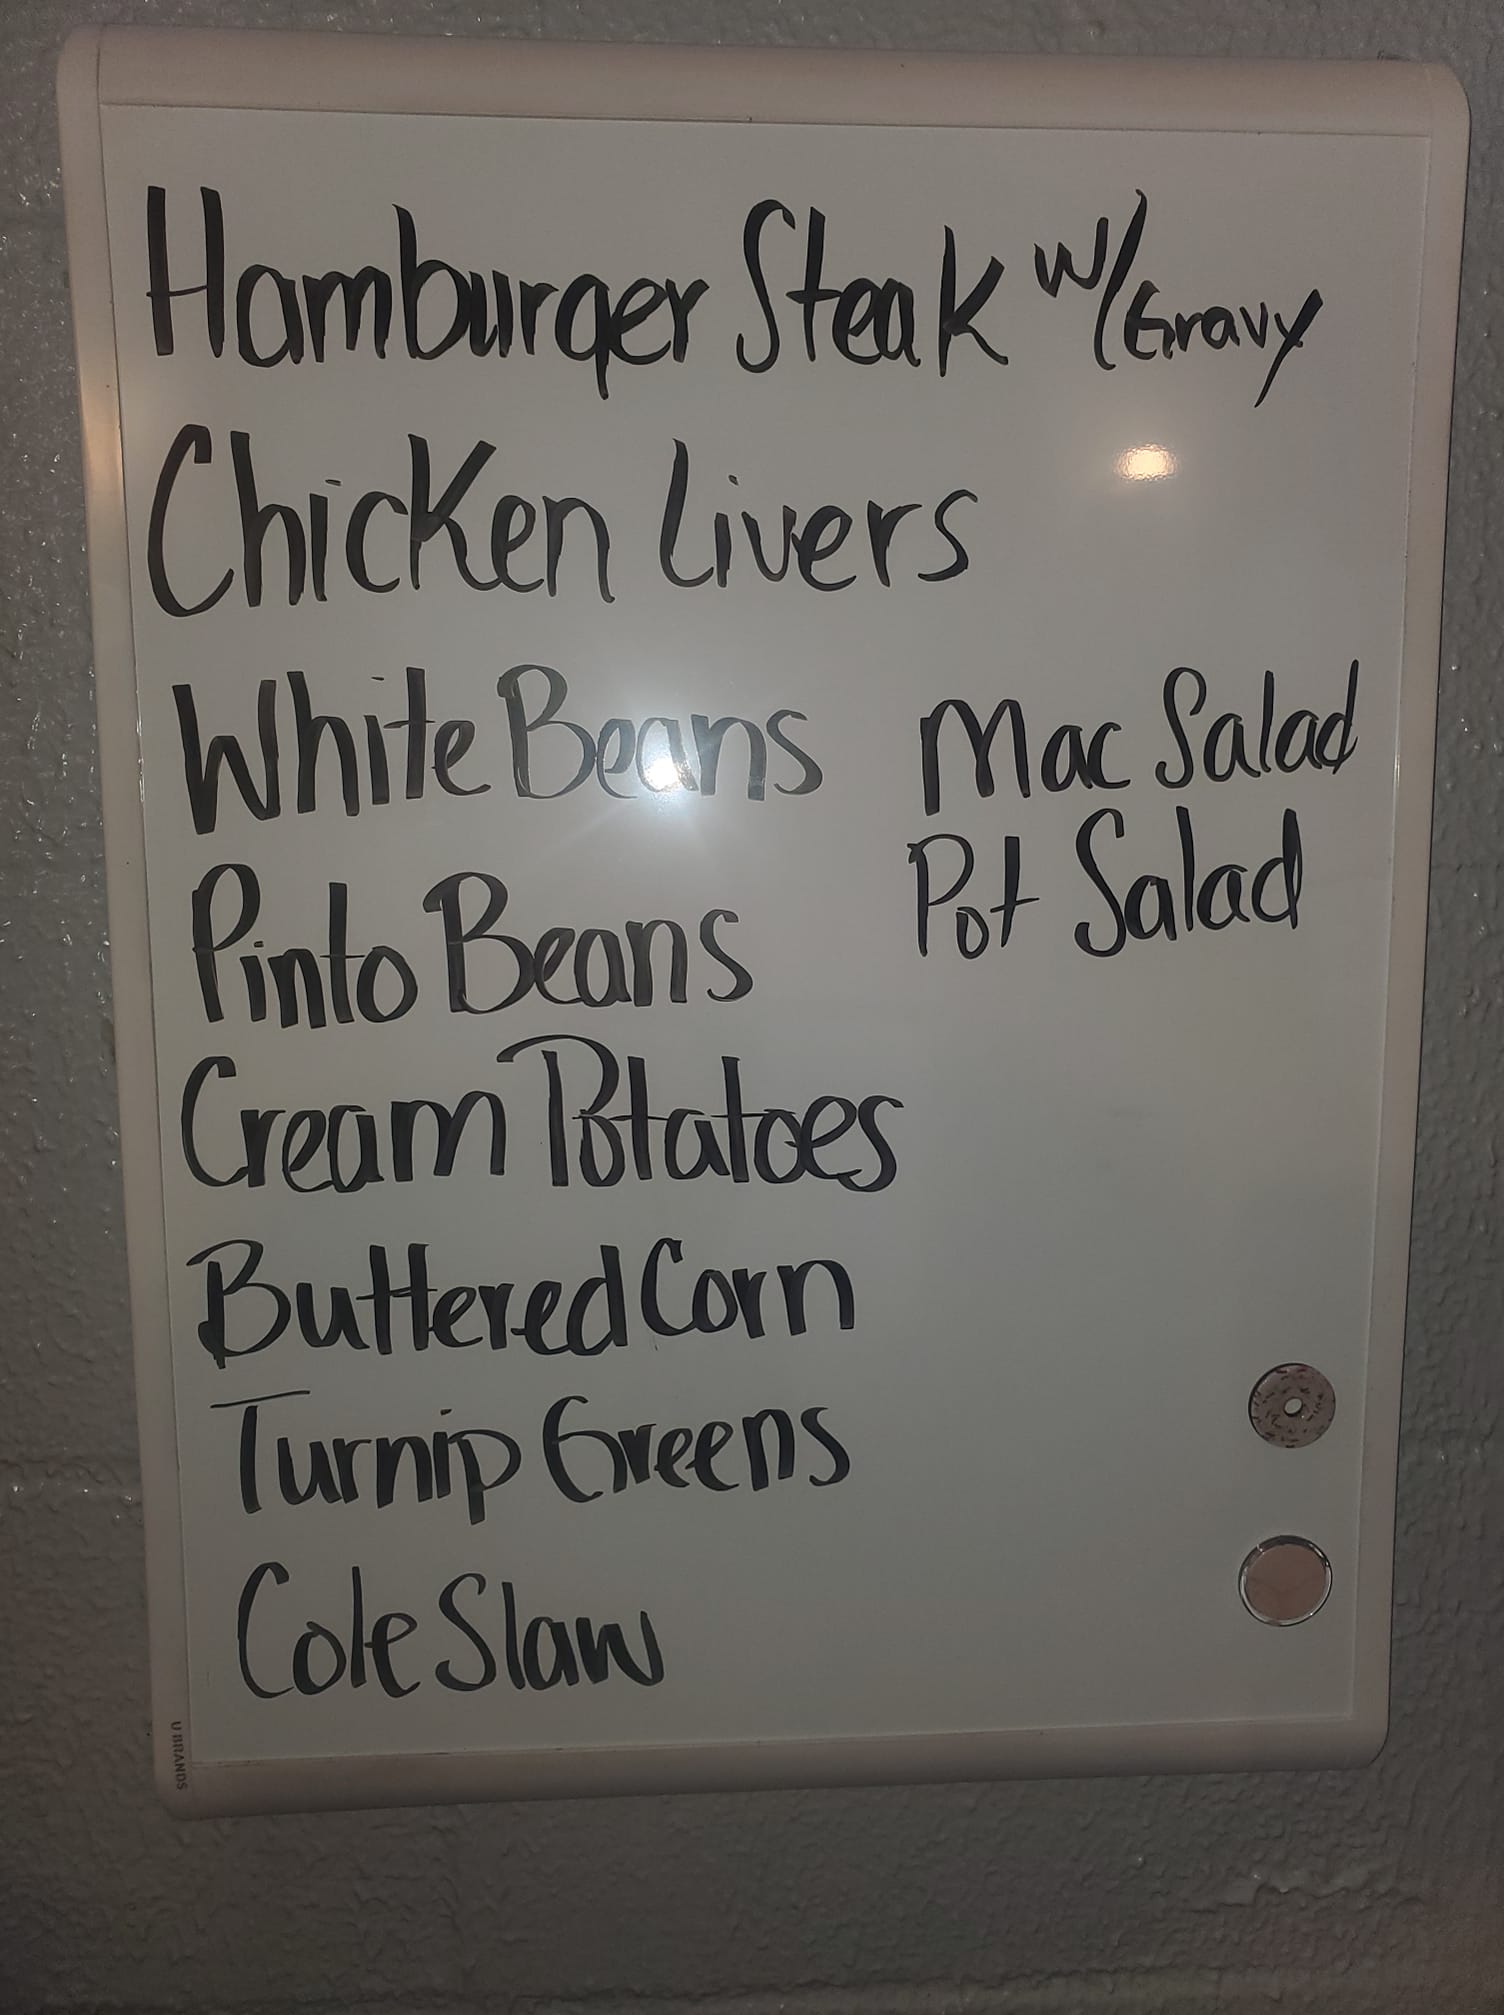 Hamburger Steak w/Gravy
Chicken Livers
White Beans
Mac Salad
Pinto Beans
Pot Salad
Cream Potatoes
Buttered Corn
Turnip Greens
Cole Slaw
U BRANDS